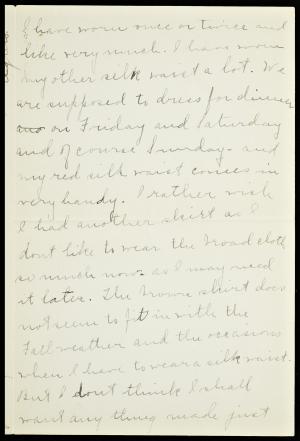 I have worn once or twice and
like very much. I have worn
my other silk waist a lot. We
are supposed to dress for dinner
on Friday and Saturday
and of course Sunday - and
my red silk waist comes in
very handy. I rather wish
I had another skirt as I
dont like to wear the broad cloth
so much now as I may need
it later. The brown skirt does
not seem to fit in with the
Fall weather and the occasions
when I have to wear a silk waist.
But I dont think I shall
want any thing made just